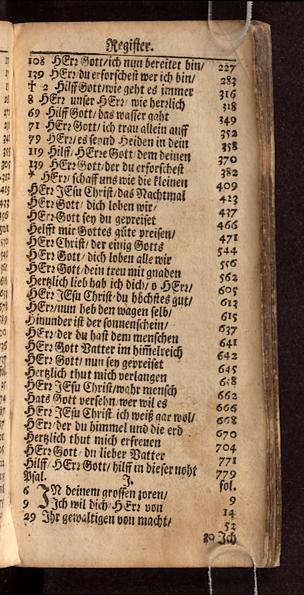 Register.
108 HErr Gott/ich nun bereitet bin/ 227
139 HErr/du erforschest wer ich bin/ 283
† 2 Hilff Gott/wie geht es immer 316
8 HErr unser HErr/ wie herrlich 318
69 Hilff Gott/das wasser gaht 349
71 HErr Gott/ich trau allein auff 352
79 HErr/es seynd Heiden in dein 358
119 Hilff/HErre Gott/dem deinen 370
139 HErr Gott/der du erforschest 382
* HErr/schaff uns wie die kleinen 409
HErr JEsu Christ/das Nachtmal 423
HErr Gott/ dich loben wir/ 437
HErr Gott sey du gepreiset 466
Helfft mir Gottes güte preisen/ 471
HErr Christ/der einig Gotts 544
HErr Gott/ dich loben alle wir 556
HErr Gott/dein treu mit gnaden 562
Hertzlich lieb hab ich dich/o HErr/ 605
HErr JEsu Christ/du höchstes gut/ 613
HErr/nun heb den wagen selb/ 615
Hmunder ist der sonnenschein/ 637
HErr/der du hast dem menschen 641
HErr Gott Vatter im him̃elreich 642
HErr Gott/nun sey gepreiset 645
Hertzlich thut mich verlangen 658
HErr JEsu Christ/wahr mensch 662
Hats Gott versehn/wer wil es 666
HErr JEsu Christ/ich weiß gar wol/ 668
HErr/der du himmel und die erd 670
Hertzlich thut mich erfreuen 704
HErr Gott/du lieber Vatter 771
Hilff/HErr Gott/hilff in dieser noht 779
Psal. J. fol.
6 JN deinem grossen zoren/ 9
9 Ich wil dich/HErr von 14
29 Ihr gewaltigen von macht/ 52
80 Ich